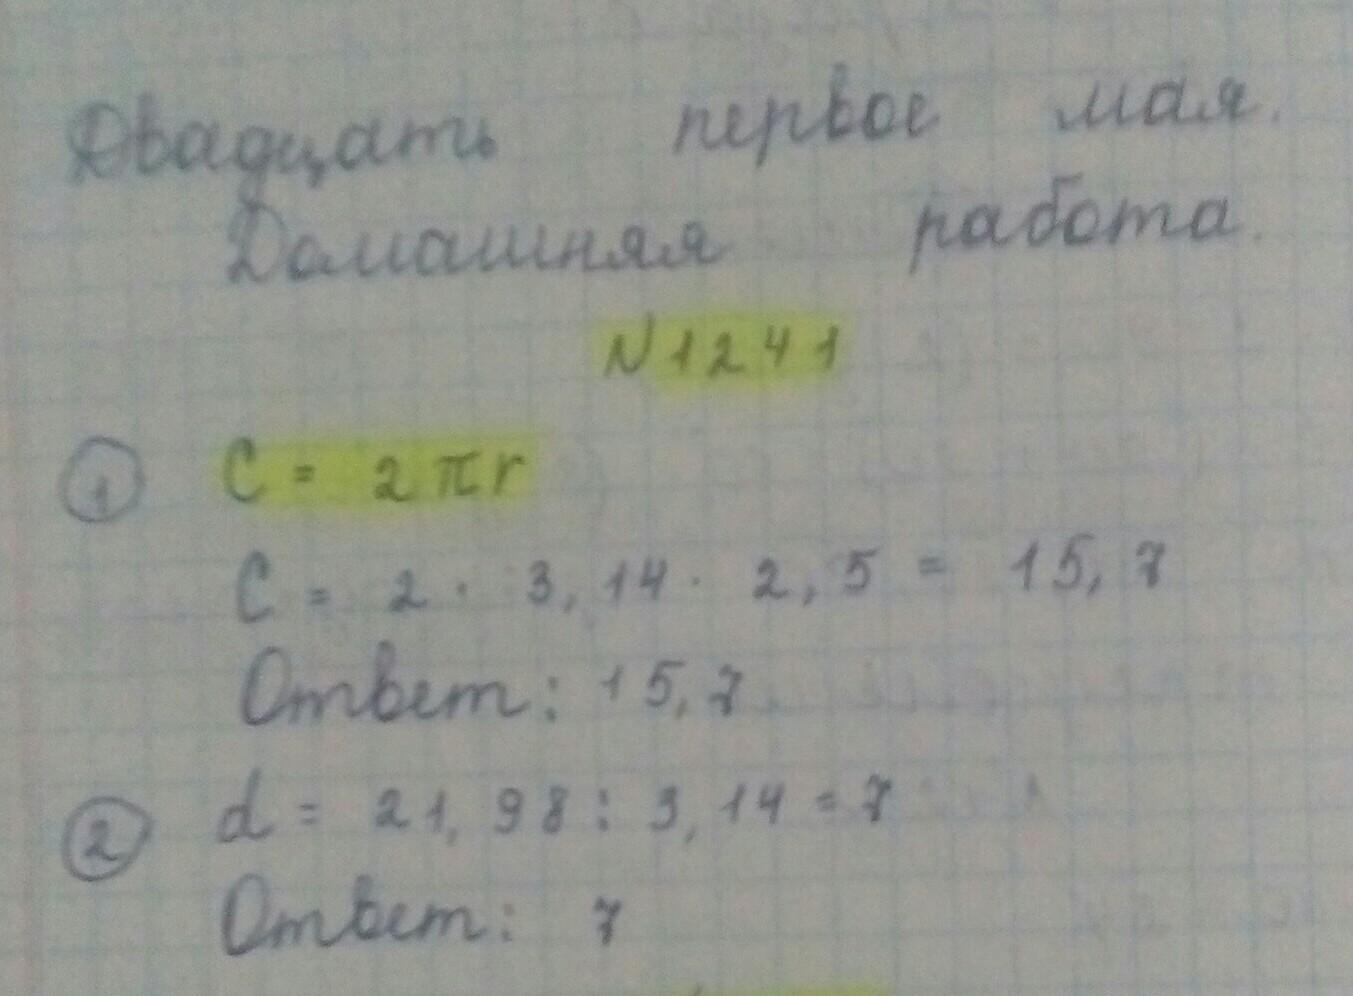 Двадцать первое мая.
Домашняя работа.
N1241
1 C = 2πr
C = 2 · 3,14 · 2,5 = 15,7
Ответ: 15,7
2 d = 21,98 : 3,14 = 7
Ответ: 7